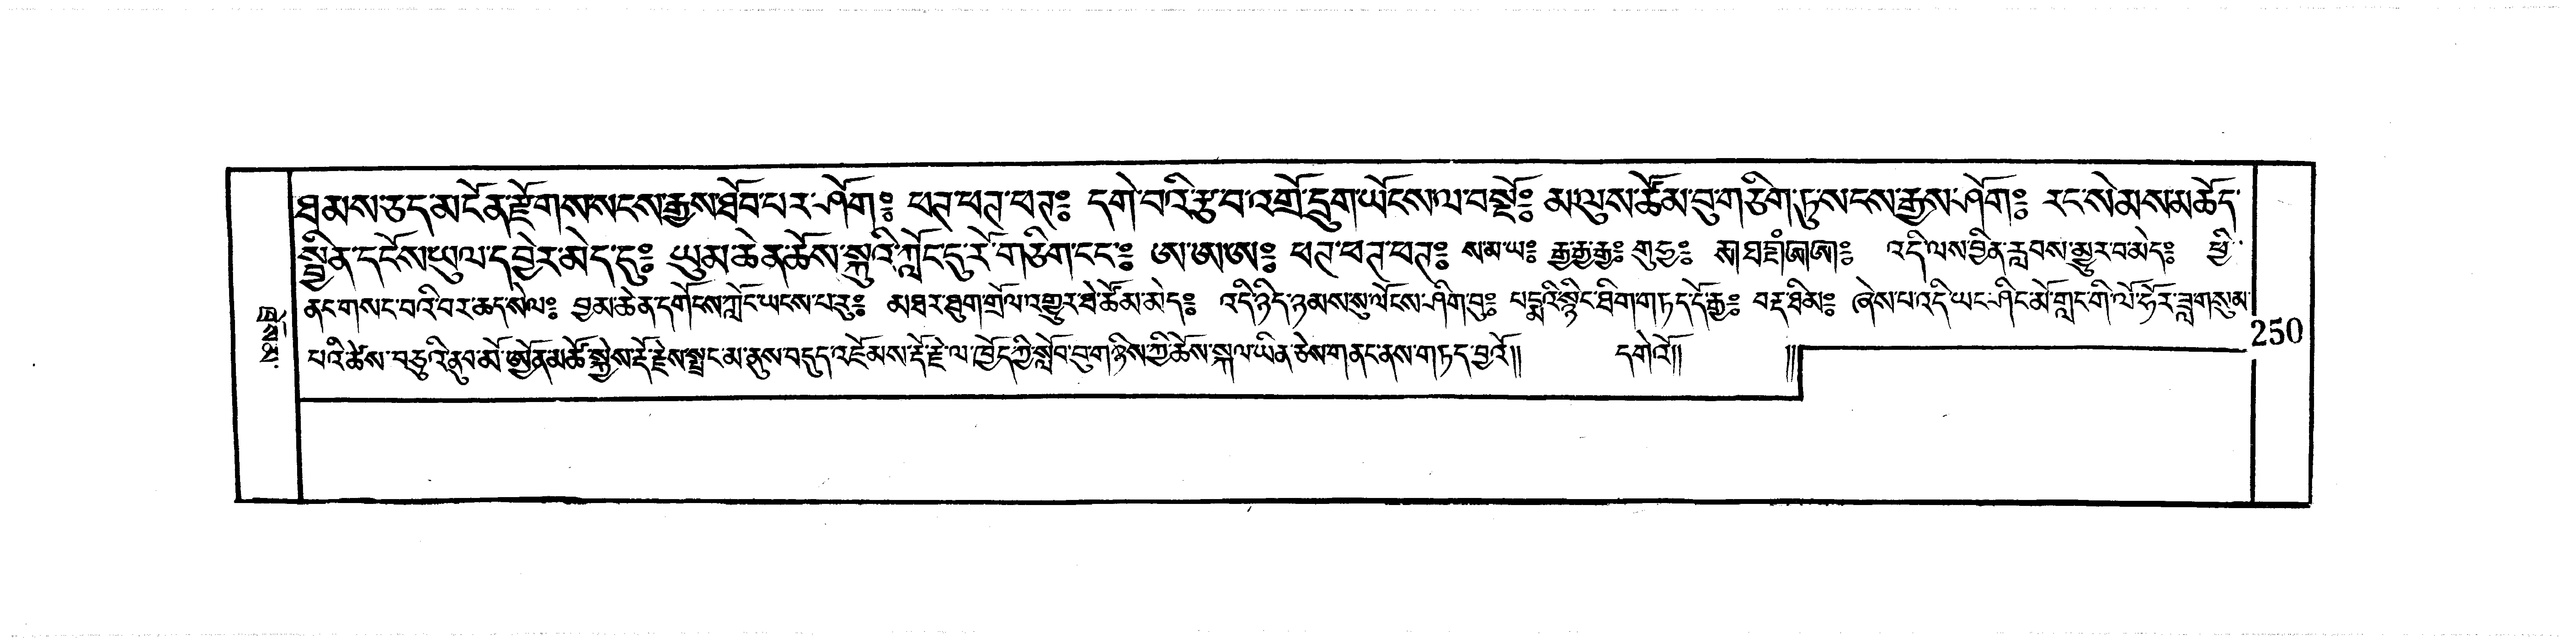 ཐམས་ཅད་མངོན་རྫོགས་སངས་རྒྱས་ཐོབ་པར་ཤོག༔ ཕཊ་ཕཊ་ཕཊ༔ དགེ་བའི་རྩ་བ་འགྲོ་དྲུག་ཡོངས་ལ་བསྔོ༔ མ་ལུས་ཚོམ་བུ་གཅིག་ཏུ་སངས་རྒྱས་ཤོག༔ རང་སེམས་མཆོད་
སྦྱིན་དངོས་ཡུལ་དབྱེར་མེད་དུ༔ ཡུམ་ཆེན་ཆོས་སྐུའི་ཀློང་དུ་རོ་གཅིག་ངང་༔ ཨ་ཨ་ཨ༔ ཕཊ་ཕཊ་ཕཊ༔ ས་མ་ཡ༔ རྒྱ་རྒྱ་རྒྱ༔ གུ་ཧྱ༔ འདི་ལས་བྱིན་རླབས་མྱུར་བ་མེད༔ ཕྱི་
ནང་གསང་བའི་བར་ཆད་སེལ༔ བྱམ་ཆེན་དགོངས་ཀློང་ཡངས་པརུ༔ མཐར་ཐུག་གྲོལ་འགྱུར་ཐེ་ཚོམ་མེད༔ འདི་ཉིད་ཉམས་སུ་ལོངས་ཤིག་བུ༔ པདྨའི་སྙིང་ཐིག་གཏད་དོ་རྒྱ༔ བརྡ་ཐིམ༔ ཞེས་པ་འདི་ཡང་ཤིང་མོ་གླང་གི་ལོ་ཧོར་ཟླ་གསུམ་
པའི་ཚེས་བཅུའི་ནུབ་མོ་ཨོ་རྒྱན་མཚོ་སྐྱེས་རྡོ་རྗེས་སྤྲང་མ་ནུས་བདུད་འཇོམས་རྡོ་རྗེ་ལ་ཁྱོད་ཀྱི་སློབ་བུ་ག་ཉིས་ཀྱི་ཆོས་སྐལ་ཡིན་ཅེས་གནང་ནས་གཏད་བྱའོ།། དགེའོ།། །།
250